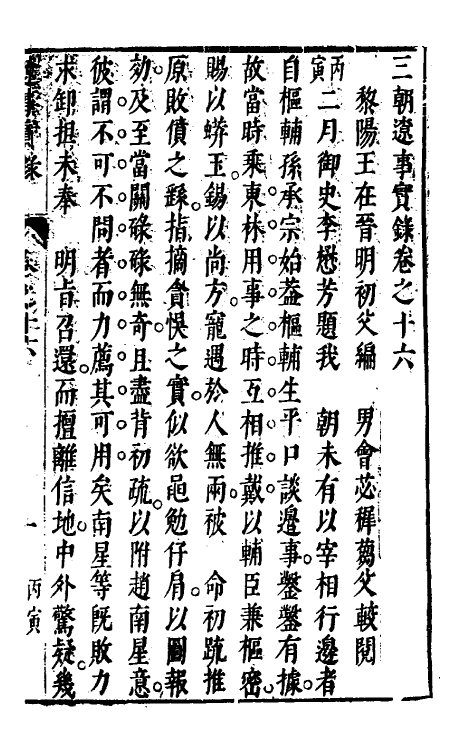 三朝遼事實錄卷之十六
黎陽王在晉明初父編　男會苾穉蒭父較閱
丙寅二月御史李懋芳題我　朝未有以宰相行邊者
自樞輔孫承宗始葢樞輔生平口談邊事鑿鑿有據
故當時乘東林用事之時互相推戴以輔臣兼樞密
賜以蟒玉錫以尚方寵遇於人無兩被　命初疏推
原敗僨之繇指摘貪悞之實似欲黽勉仔肩以圖報
効及至當關碌碌無奇且盡背初疏以附趙南星意
彼謂不可不問者而力薦其可用矣南星等旣敗力
求卸担未奉　明旨召還而擅離信地中外驚疑幾
卷之十六
一
丙寅